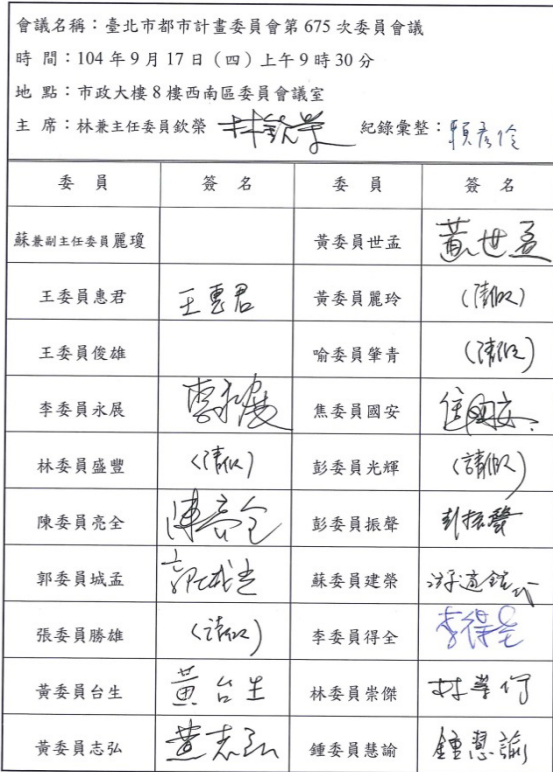 會議名稱：臺北市都市計畫委員會第 675 次委員會議
時 間：104 年 9 月 17 日（四）上午 9 時 30 分
地 點：市政大樓 8 樓西南區委員會議室
主 席：林兼主任委員欽榮 林欽榮 紀錄彙整：賴彥伶
委 員 簽 名 委 員 簽 名
蘇兼副主任委員麗瓊 黃委員世孟 黃世孟
王委員惠君 王惠君 黃委員麗玲 (請假)
王委員俊雄 喻委員肇青 (請假)
李委員永展 李永展 焦委員國安 焦國安
林委員盛豐 (請假) 彭委員光輝 (請假)
陳委員亮全 陳亮全 彭委員振聲 彭振聲
郭委員城孟 郭城孟 蘇委員建榮 游適銘代
張委員勝雄 (請假) 李委員得全 李得全
黃委員台生 黃台生 林委員崇傑 林崇傑
黃委員志弘 黃志弘 鍾委員慧諭 鍾慧諭